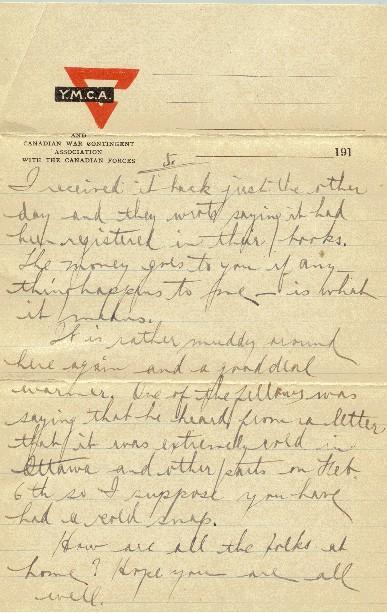 Y.M.C.A.
AND
CANADIAN WAR CONTINGENT
ASSOCIATION
WITH THE CANADIAN FORCES
5. 191
I received it back just the other
day and they wrote saying it had
been registered in their books.
The money goes to you if any
thing happens to me — is what
it means.
It is rather muddy around
here again and a good deal
warmer. One of the fellows was
saying that he heard from a letter
that it was extremely cold in
Ottawa and other parts on Feb.
6th so I suppose you have
had a cold snap.
How are all the folks at
home? Hope you are all
well.